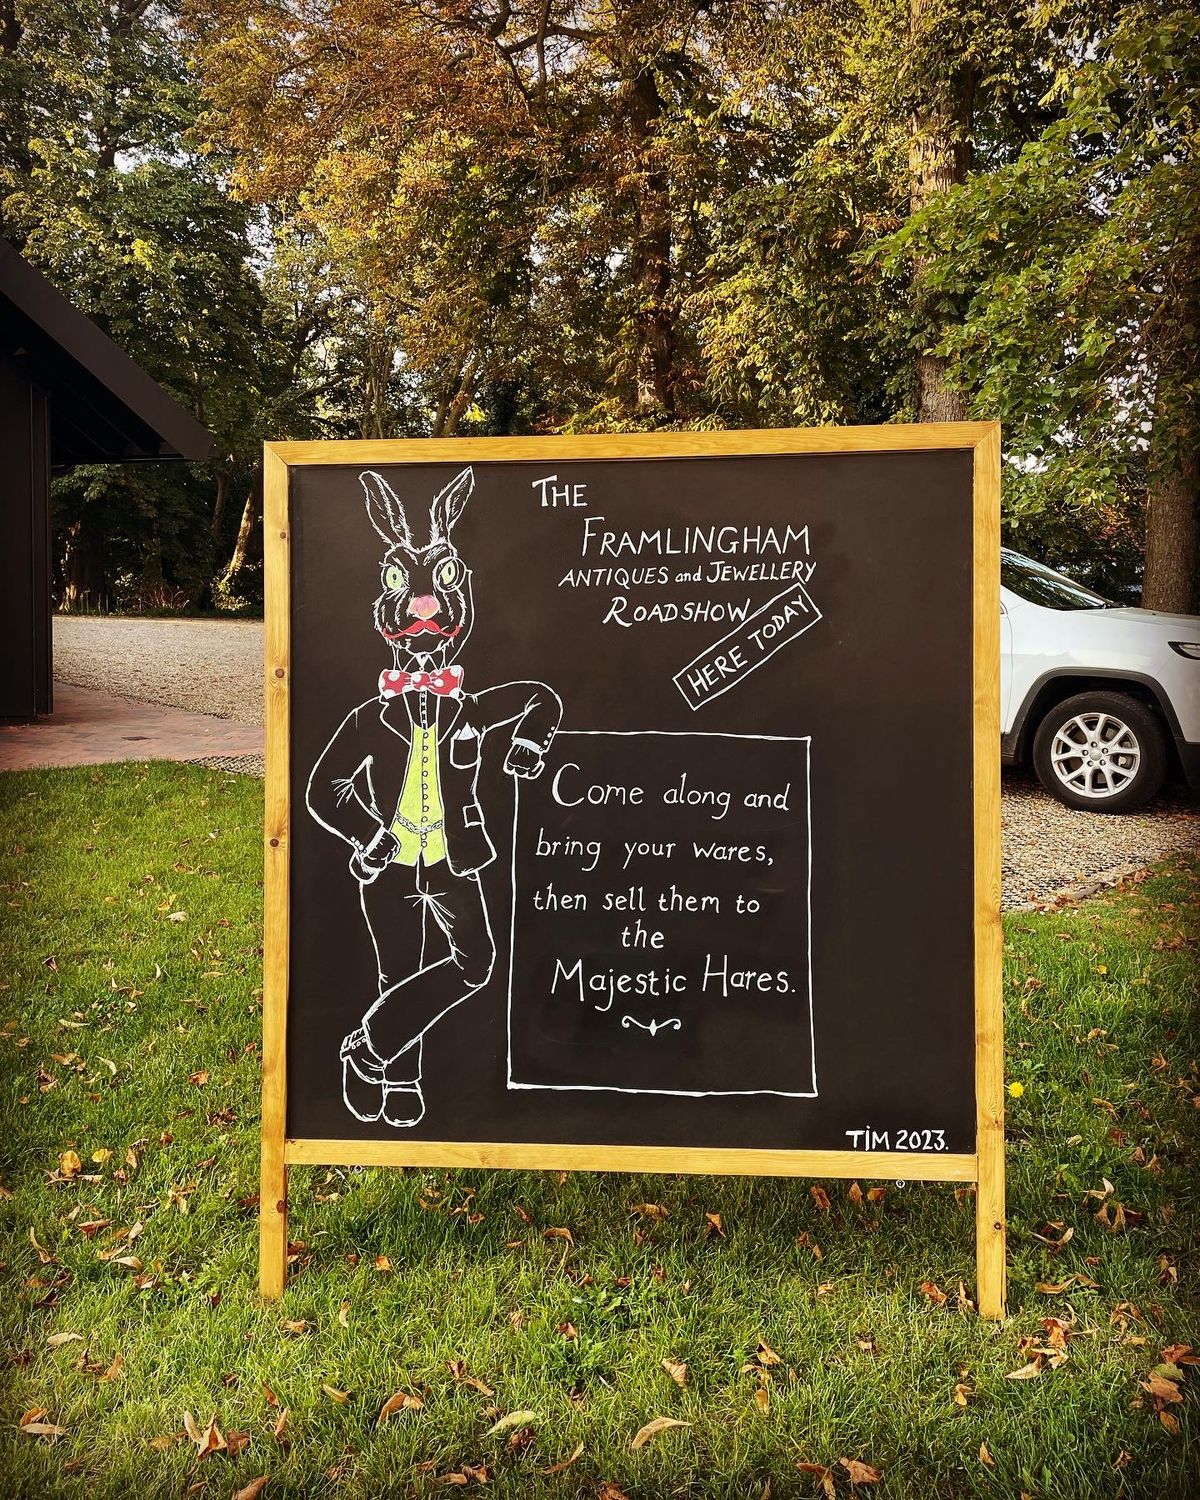 THE
FRAMLINGHAM
ANTIQUES and JEWELLERY
ROADSHOW
HERE TODAY
Come along and
bring your wares,
then sell them to
the
Majestic Hares.
TIM 2023.